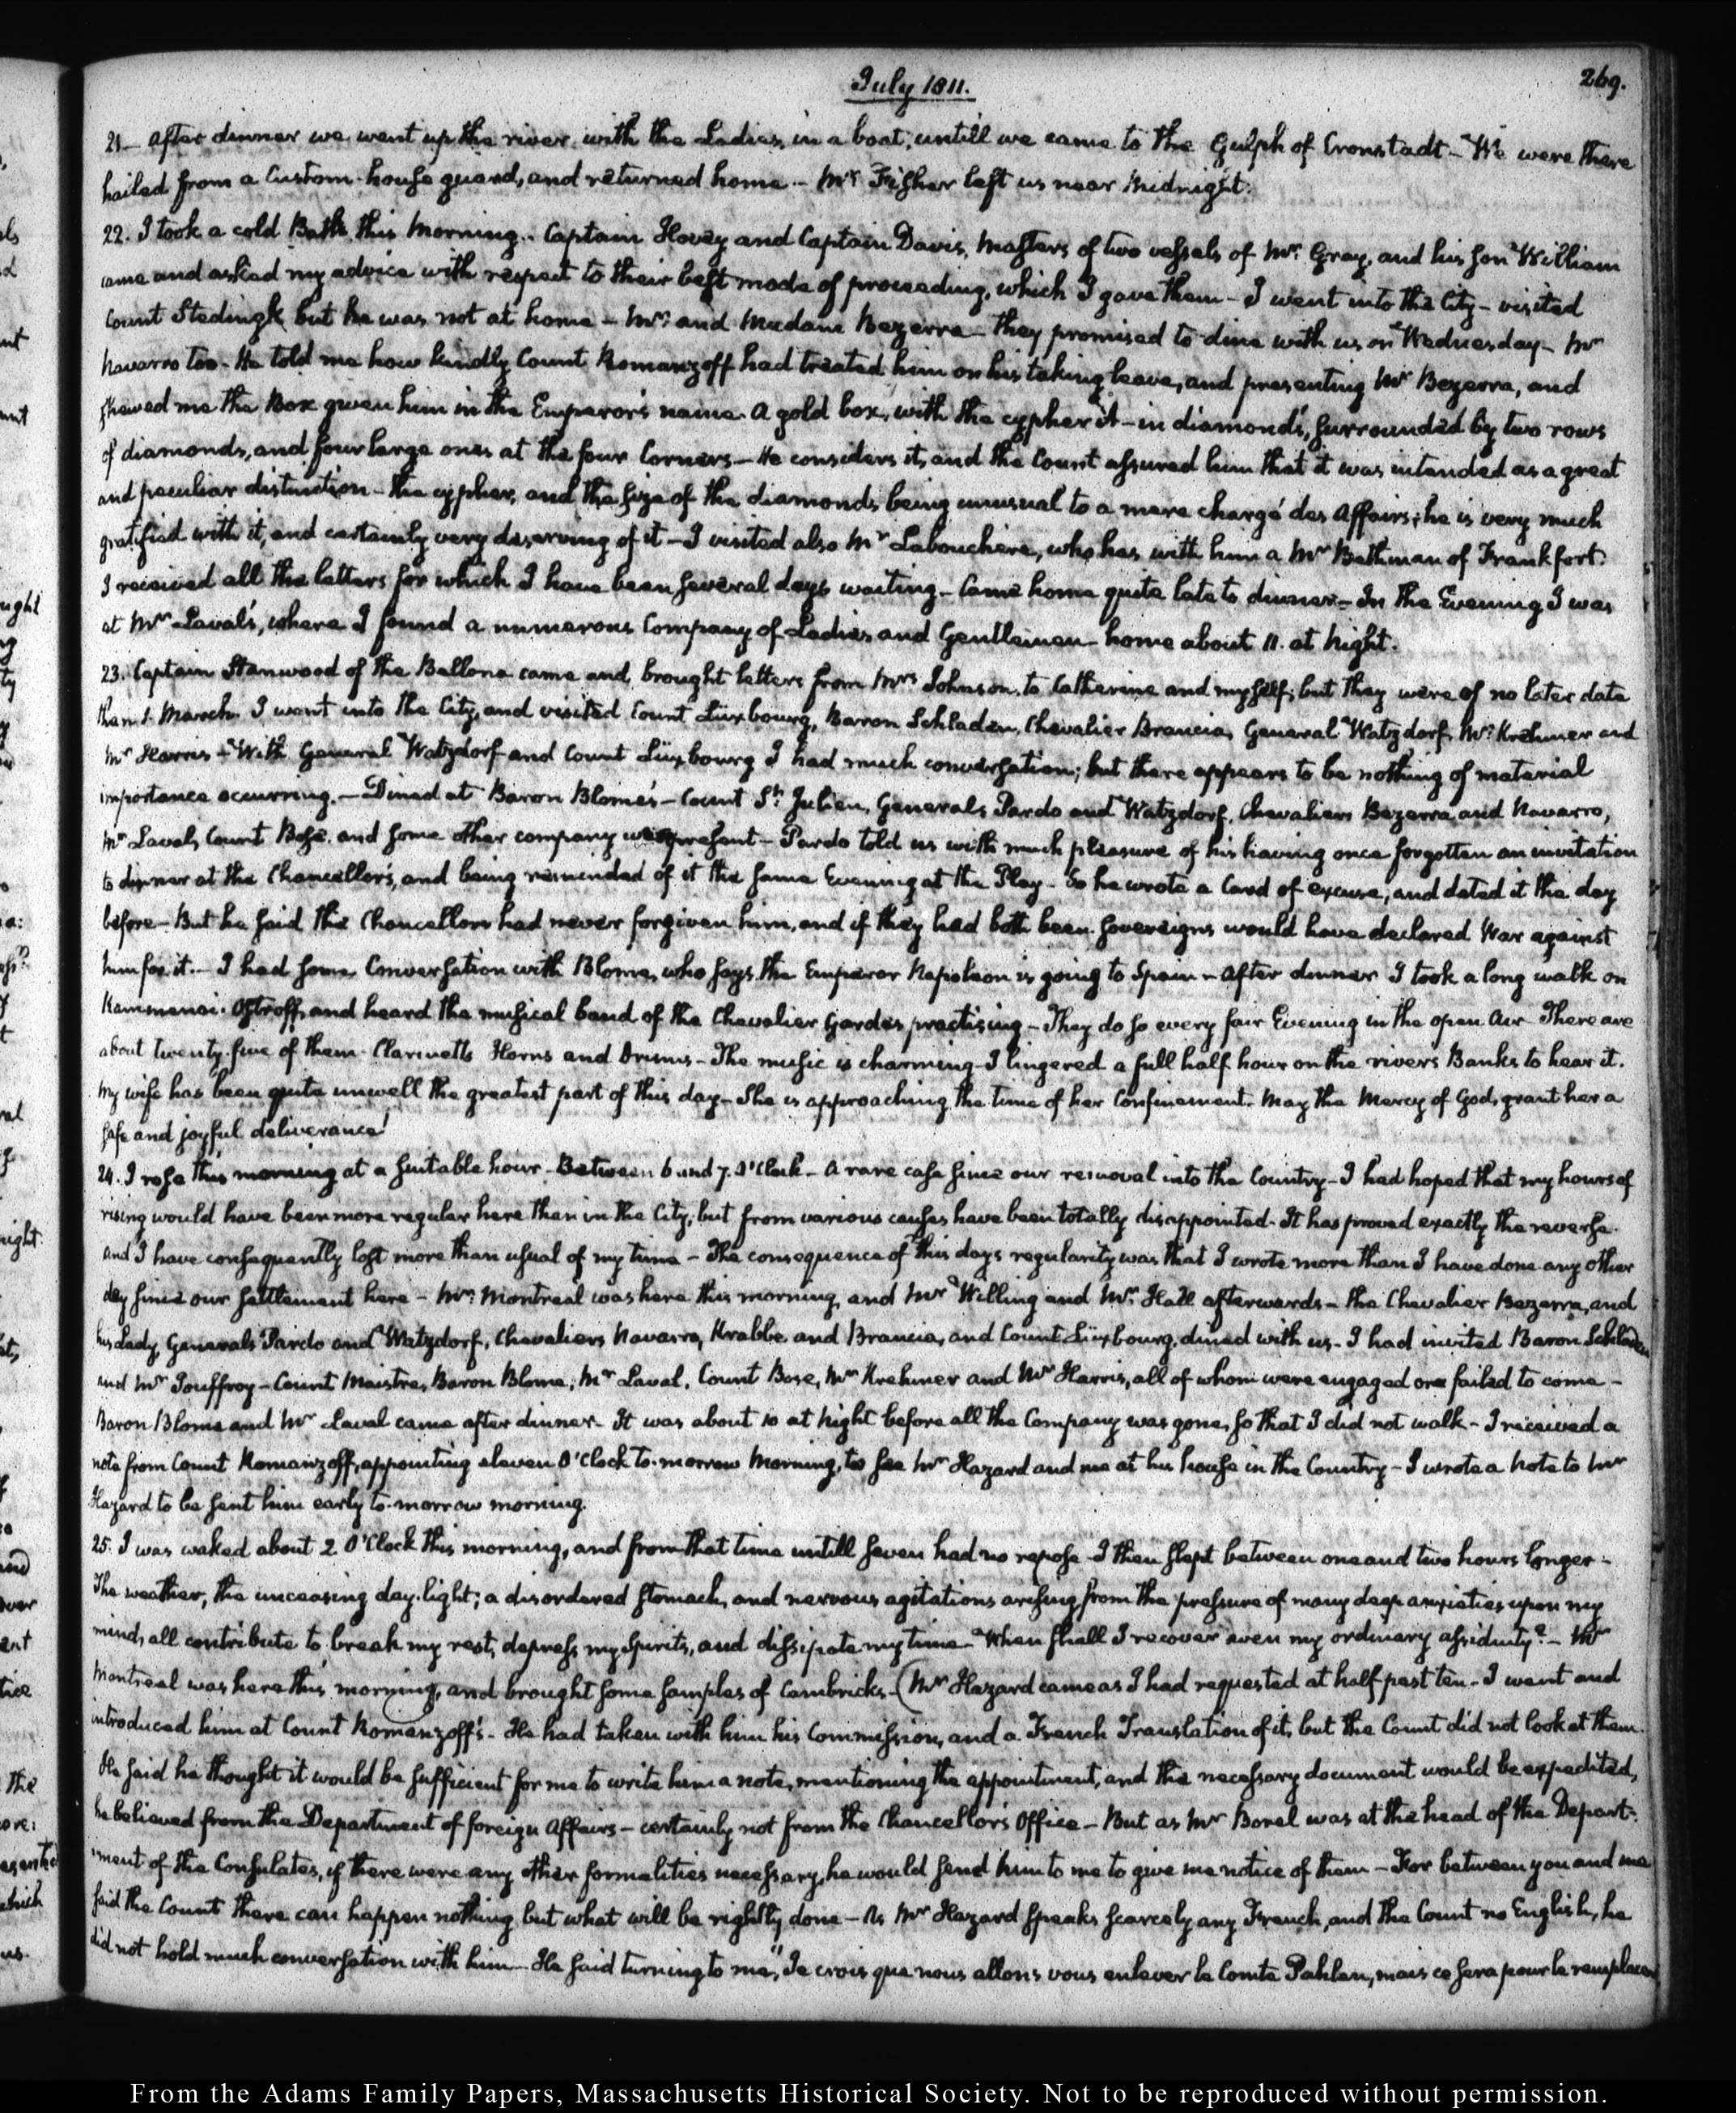 July 1811.
269.
21— After dinner we went up the river, with the Ladies, in a boat, untill we came to the Gulph of Cronstadt — We were there
hailed from a Custom-house guard, and returned home — Mr. Fisher left us near Midnight.
22. I took a cold Bath, this Morning. Captain Hovey and Captain Davis, Masters of two vessels of Mr. Gray, and his son William
came and asked my advice with respect to their best mode of proceeding, which I gave them — I went into the City — visited
Count Stedingk but he was not at home — Mr. and Madam Bezerra — they promised to dine with us on Wednesday — Mr
Navarro too — He told me how kindly Count Romanzoff had treated him on his taking leave, and presenting Mr Bezerra, and
shewed me the Box given him in the Emperor's name. A gold box, with the cypher — in diamonds, surrounded by two rows
of diamonds, and four large ones at the four Corners — He considers it, and the Count assured him that it was intended as a great
and peculiar distinction — the cypher, and the size of the diamonds being unusual to a mere chargé des Affairs; he is very much
gratified with it, and certainly very deserving of it — I visited also Mr Labouchere, who has with him a Mr Bethman of Frankfort.
I received all the letters for which I have been several days waiting — Came home quite late to dinner — In the Evening I was
at Mr Laval's, where I found a numerous Company of Ladies and Gentlemen — home about 11. at Night.
23. Captain Stanwood of the Bellona came and brought letters from Mrs Johnson, to Catherine and myself; but they were of no later date
than 1. March. I went into the City, and visited Count Lüxbourg, Baron Schladen, Chevalier Brancia, General Watzdorf, Mr. Krehmer and
Mr Harris — With General Watzdorf and Count Lüxbourg I had much conversation; but there appears to be nothing of material
importance occurring. — Dined at Baron Blome's — Count St. Julien, Generals Pardo and Watzdorf, Chevaliers Bezerra and Navarro,
Mr Laval, Count Bose, and some other company were present — Pardo told us with much pleasure of his having once forgotten an invitation
to dinner at the Chancellor's, and being reminded of it the same Evening at the Play — So he wrote a Card of excuse, and dated it the day
before — But he said the Chancellor had never forgiven him, and if they had both been Sovereigns would have declared War against
him for it. — I had some Conversation with Blome, who says, the Emperor Napoleon is going to Spain — After dinner I took a long walk on
Kammenoi-Ostroff, and heard the musical band of the Chevalier Gardes practising — They do so every fair Evening in the open Air — There are
about twenty-five of them. Clarinetts Horns and Drums — The music is charming — I lingered a full half hour on the rivers Banks to hear it.
My wife has been quite unwell the greatest part of this day — She is approaching the time of her Confinement. May the Mercy of God, grant her a
safe and joyful deliverance!
24. I rose this morning at a suitable hour — Between 6 and 7. O'Clock — A rare case since our removal into the Country — I had hoped that my hours of
rising would have been more regular here than in the City; but from various causes have been totally disappointed — It has proved exactly the reverse.
and I have consequently lost more than usual of my time — The consequence of this days regularity was that I wrote more than I have done any other
day since our settlement here — Mr. Montreal was here this morning, and Mr Willing and Mr. Hall afterwards — The Chevalier Bezerra, and
his Lady, Generals Pardo and Watzdorf, Chevaliers Navarro, Krabbe and Brancia, and Count Lüxbourg, dined with us — I had invited Baron Schladen
and Mr Jouffroy — Count Maistre, Baron Blome, Mr Laval, Count Bose, Mr Krehmer and Mr Harris, all of whom were engaged or failed to come —
Baron Blome and Mr Laval came after dinner — It was about 10 at Night before all the Company was gone, so that I did not walk — I received a
note from Count Romanzoff, appointing eleven O'Clock to-morrow Morning, to see Mr Hazard and me at his house in the Country — I wrote a Note to Mr
Hazard to be sent him early to-morrow morning.
25. I was waked about 2 O'Clock this morning, and from that time untill seven had no repose — I then slept between one and two hours longer —
The weather, the unceasing day-light; a disordered stomach, and nervous agitations arising from the pressure of many deep anxieties upon my
mind, all contribute to break my rest, depress my spirits, and dissipate my time — When shall I recover even my ordinary assiduity? — Mr
Montreal was here this morning, and brought some samples of Cambricks — (Mr Hazard came as I had requested at half past ten — I went and
introduced him at Count Romanzoff's — He had taken with him his Commission, and a French Translation of it, but the Count did not look at them.
He said he thought it would be sufficient for me to write him a note, mentioning the appointment, and the necessary document would be expedited,
he believed from the Department of foreign Affairs — certainly not from the Chancellor's Office — But as Mr Borel was at the head of the Depart-
ment of the Consulates, if there were any other formalities necessary, he would send him to me to give me notice of them — For between you and me
said the Count there can happen nothing but what will be rightly done — As Mr Hazard speaks scarcely any French, and the Count no English, he
did not hold much conversation with him — He said turning to me, "Je crois que nous allons vous enlever le Comte Pahlen, mais ce sera pour le remplacer
From the Adams Family Papers, Massachusetts Historical Society. Not to be reproduced without permission.